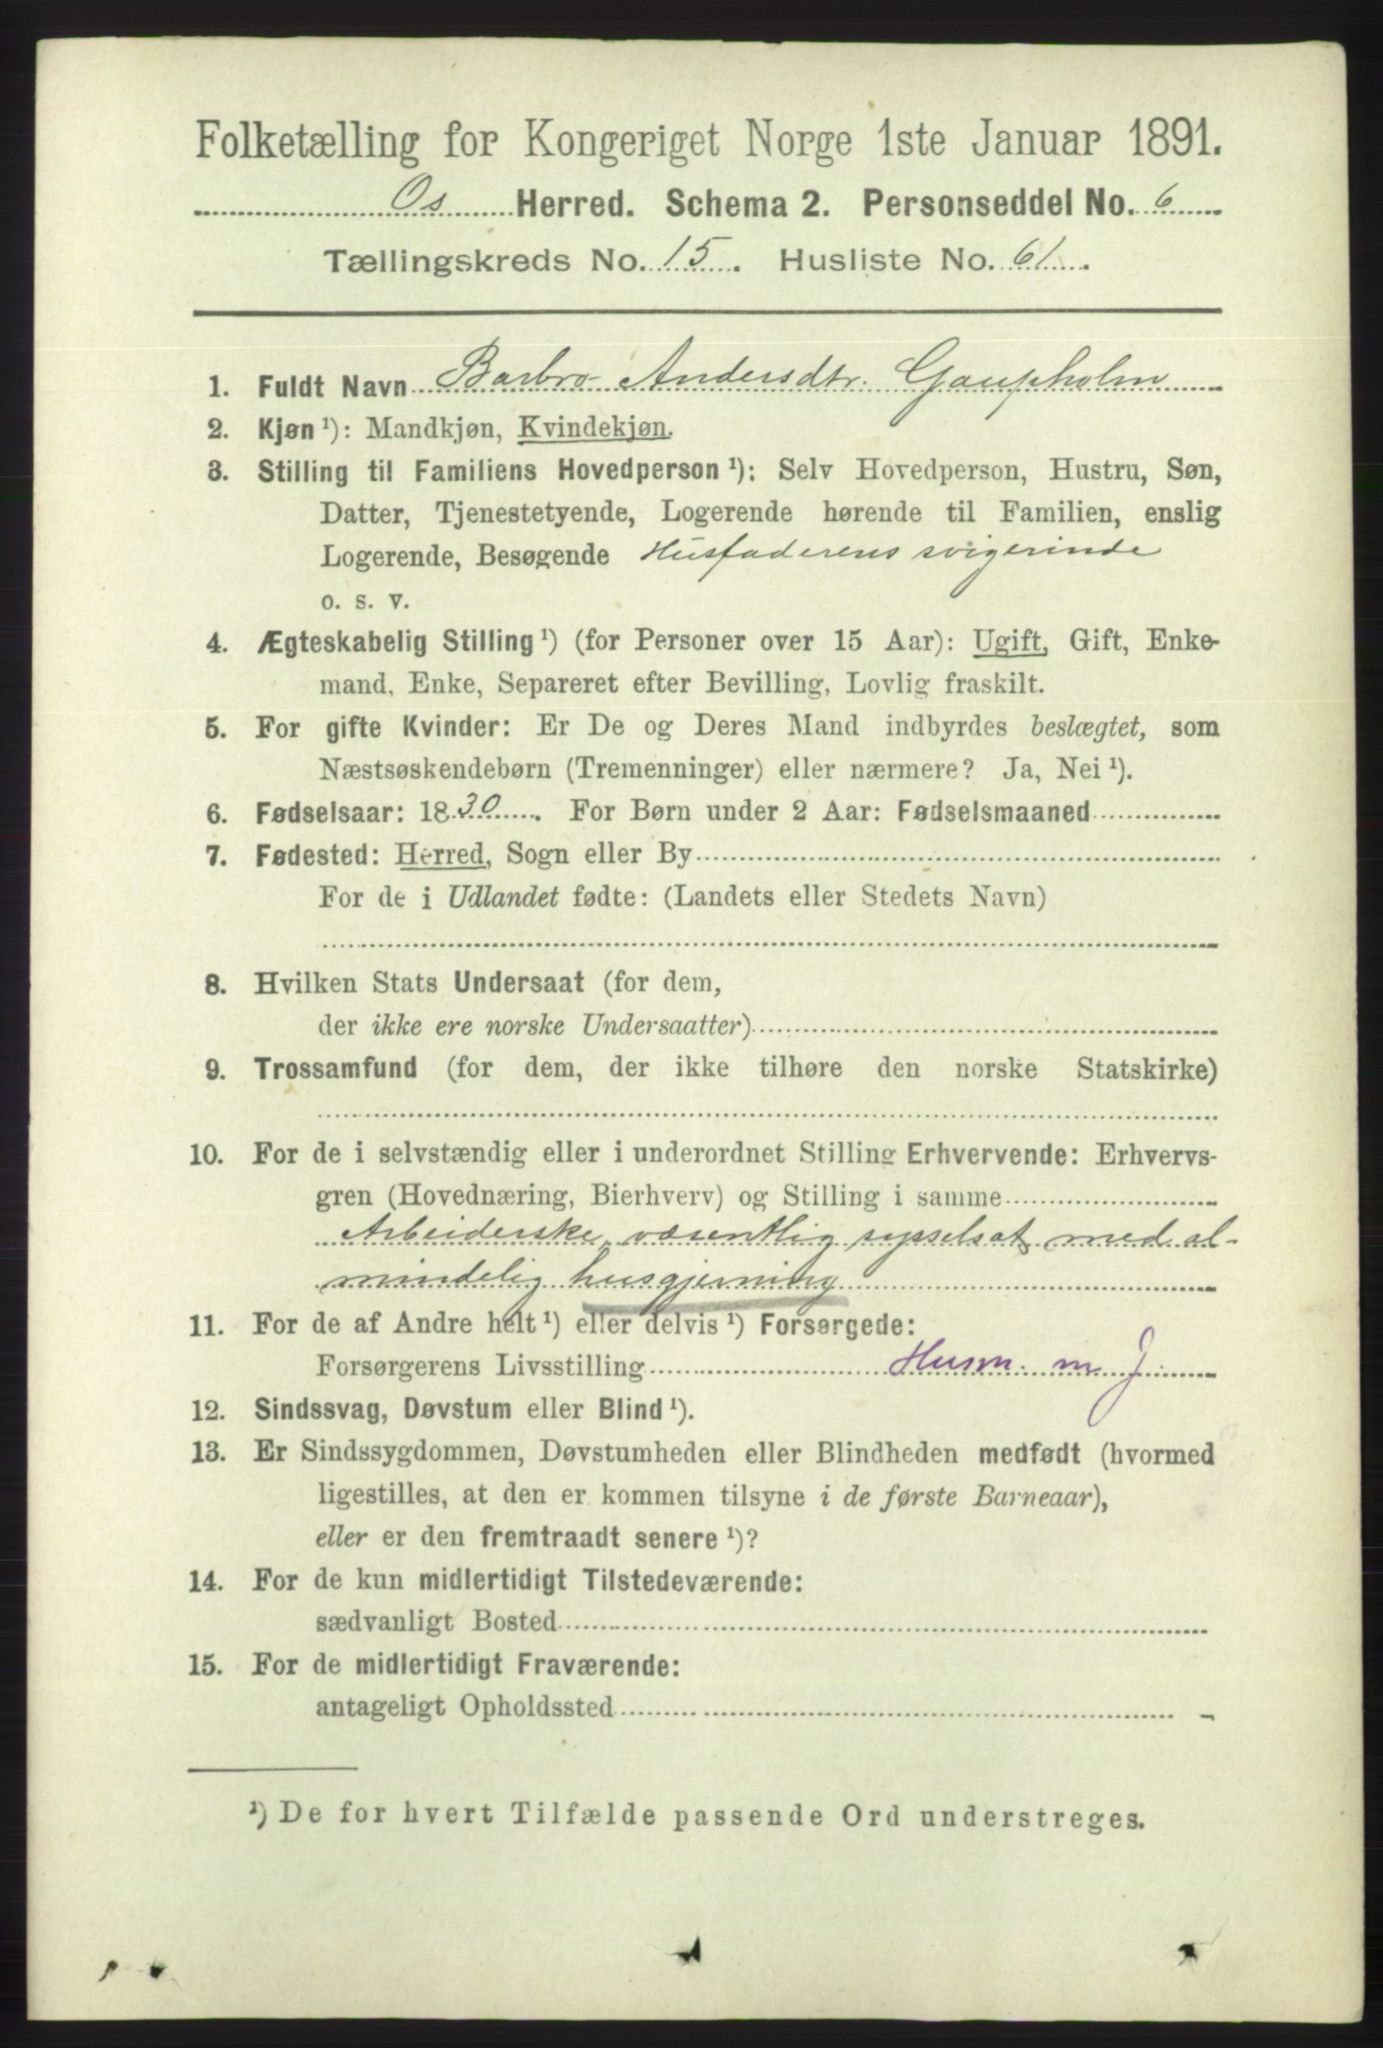 Folketælling for Kongeriget Norge 1ste Januar 1891.
Os Herred. Schema 2. Personseddel No. 6
Tællingskreds No. 15. Husliste No. 61.
1. Fuldt Navn Barbro Andersdtr. Gaupholm
2. Kjøn ¹): Mandkjøn, Kvindekjøn.
3. Stilling til Familiens Hovedperson ¹): Selv Hovedperson, Hustru, Søn,
Datter, Tjenestetyende, Logerende hørende til Familien, enslig
Logerende, Besøgende Husfaderens svigerinde
o. s. v.
4. Ægteskabelig Stilling ¹) (for Personer over 15 Aar): Ugift, Gift, Enke-
mand, Enke, Separeret efter Bevilling, Lovlig fraskilt.
5. For gifte Kvinder: Er De og Deres Mand indbyrdes beslægtet, som
Næstsøskendebørn (Tremenninger) eller nærmere? Ja, Nei ¹).
6. Fødselsaar: 1830. For Børn under 2 Aar: Fødselsmaaned
7. Fødested: Herred, Sogn eller By
For de i Udlandet fødte: (Landets eller Stedets Navn)
8. Hvilken Stats Undersaat (for dem,
der ikke ere norske Undersaatter)
9. Trossamfund (for dem, der ikke tilhøre den norske Statskirke)
10. For de i selvstændig eller i underordnet Stilling Erhvervende: Erhvervs-
gren (Hovednæring, Bierhverv) og Stilling i samme
Arbeiderske, væsentlig sysselsat med al-
mindelig husgjerning
11. For de af Andre helt ¹) eller delvis ¹) Forsørgede:
Forsørgerens Livsstilling Husm. m. J.
12. Sindssvag, Døvstum eller Blind ¹).
13. Er Sindssygdommen, Døvstumheden eller Blindheden medfødt (hvormed
ligestilles, at den er kommen tilsyne i de første Barneaar),
eller er den fremtraadt senere ¹)?
14. For de kun midlertidigt Tilstedeværende:
sædvanligt Bosted
15. For de midlertidigt Fraværende:
antageligt Opholdssted
¹) De for hvert Tilfælde passende Ord understreges.